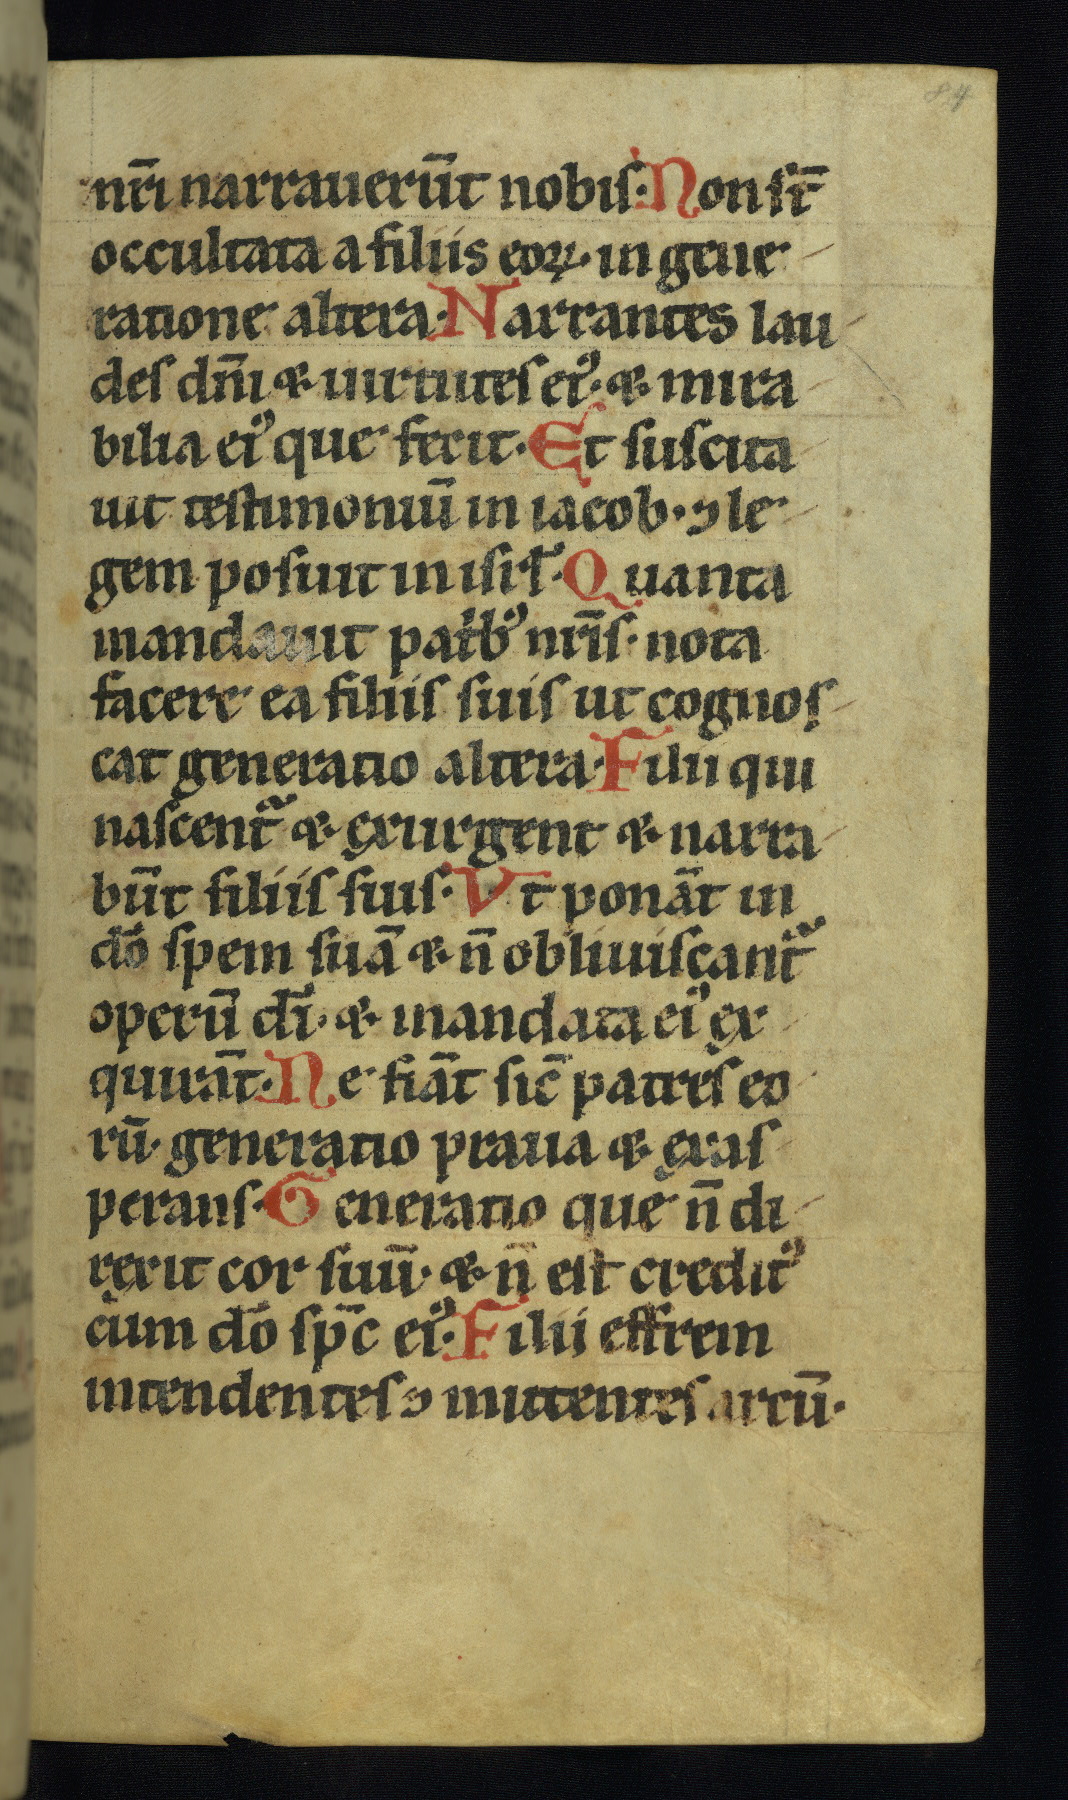 84
nr̄i narrauerūt nobis. Non st̄
occultata a filiis eoꝝ. in gene
ratione altera. Narrantes lau
des dn̄i & uirtutes ei᾿. & mira
bilia ei᾿ que fecit. Et suscita
uit testimoniū in iacob. ⁊ le
gem posuit in isrl̄. Quanta
mandauit patrib᾿ nr̄is. nota
facere ea filiis suis ut cognos
cat generatio altera. Filii qui
nascent᷑ & exurgent & narra
būt filiis suis. Vt ponāt in
dō spem suā & n̄ obliuiscant᷑
operū dī. & mandata ei᾿ ex
quirāt. Ne fiāt sic̄ patres eo
rū. generatio praua & exas
perans. Generatio que n̄ di
rexit cor suū. & n̄ est credit᾿
cum dō sp̄c ei᾿. Filii effrem
intendentes ⁊ mittentes arcū.